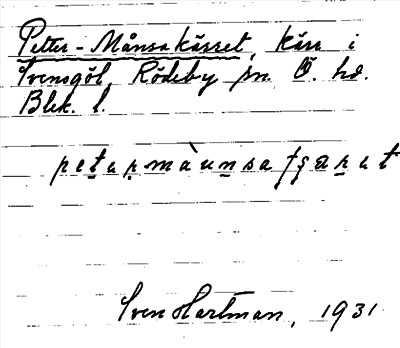 Petter-Månsakärret, kärr i
Svensgöl, Rödeby sn. Ö. hd.
Blek. l.
petermàunsa
Sven Hartman, 1931